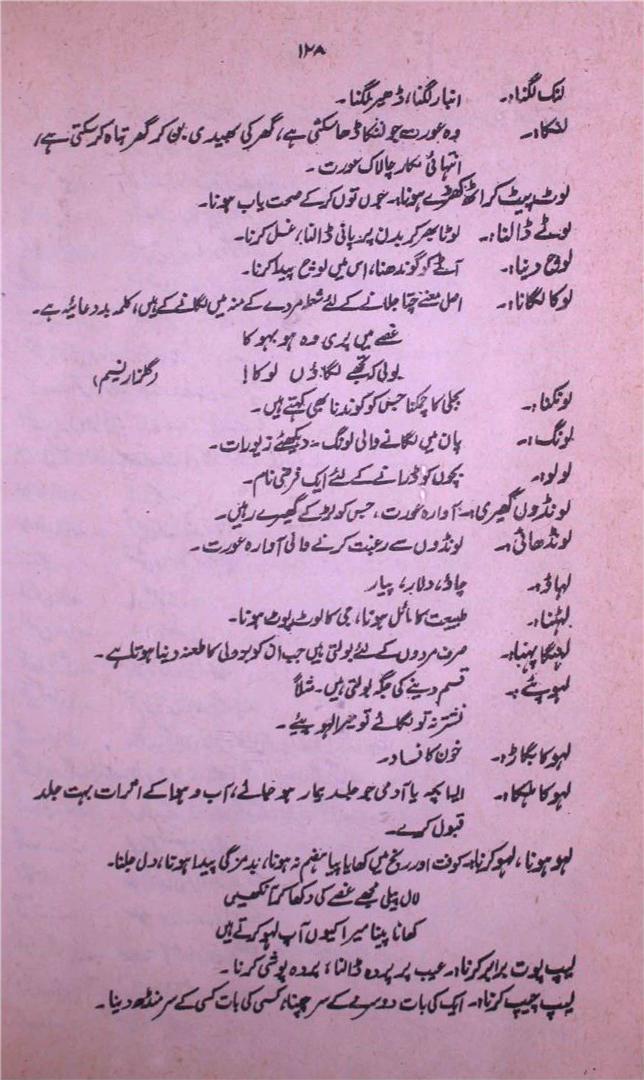 ۱۲۸
لنک لگنا:۔ انبار لگنا، ڈھیر لگنا۔
لنکا:۔ وہ عورت جو لنکا ڈھا سکتی ہے، گھر کی بھیدی بن کر گھر تباہ کر سکتی ہے،
انتہائی مکار چالاک عورت۔
لوٹ پیٹ کر اٹھ کھڑے ہونا:۔ جوں توں کر کے صحت یاب ہونا۔
لوٹے ڈالنا:۔ لوٹا بھر کر بدن پر پانی ڈالنا، غسل کرنا۔
لوچ دینا:۔ آٹے کو گوندھنا، اس میں لوچ پیدا کرنا۔
لوکا لگانا:۔ اصل معنے چتا جلانے کے لئے شعلہ مردے کے منہ میں لگانے کے ہیں، کلمہ بد دعائیہ ہے۔
غصے میں پری وہ ہو بھبوکا
بولی کہ تجھے لگاؤں لوکا! (گلزار نسیم)
لونکنا:۔ بجلی کا چمکنا جس کو کوندنا بھی کہتے ہیں۔
لونگ:۔ پان میں لگانے والی لونگ۔ دیکھئے زیورات۔
لولو:۔ بچوں کو ڈرانے کے لئے ایک فرضی نام۔
لونڈوں گھیری:۔ آوارہ عورت، جس کو لڑکے گھیرے رہیں۔
لونڈھائی:۔ لونڈوں سے رغبت کرنے والی آوارہ عورت۔
لہاڈ:۔ چاؤ، دلار، پیار
لہٹنا:۔ طبیعت کا مائل ہونا، جی کا لوٹ پوٹ ہونا۔
لہنگا پہننا:۔ صرف مردوں کے لئے بولتی ہیں جب ان کو بزدلی کا طعنہ دینا ہوتا ہے۔
لہو پئے:۔ قسم دینے کی جگہ بولتی ہیں۔ مثلاً
نشتر نہ تو لگائے تو میرا لہو پیئے۔
لہو کا بگاڑ:۔ خون کا فساد۔
لہو کا ہلکا:۔ ایسا بچہ یا آدمی جو جلد بیمار ہو جائے، آب و ہوا کے اثرات بہت جلد
قبول کرے۔
لہو ہونا، لہو کرنا:۔ کوفت اور رنج میں کھایا پیا ہضم نہ ہونا، بدمزگی پیدا ہونا، دل جلنا۔
لال پیلی مجھے غصے کی دکھا کر آنکھیں
کھانا پینا میرا کیوں آپ لہو کرتے ہیں
لیپ پوت برابر کرنا:۔ عیب پر پردہ ڈالنا، پردہ پوشی کرنا۔
لیپ چیپ کرنا:۔ ایک کی بات دوسرے کے سر چپنا، کسی کی بات کسی کے سر منڈھ دینا۔